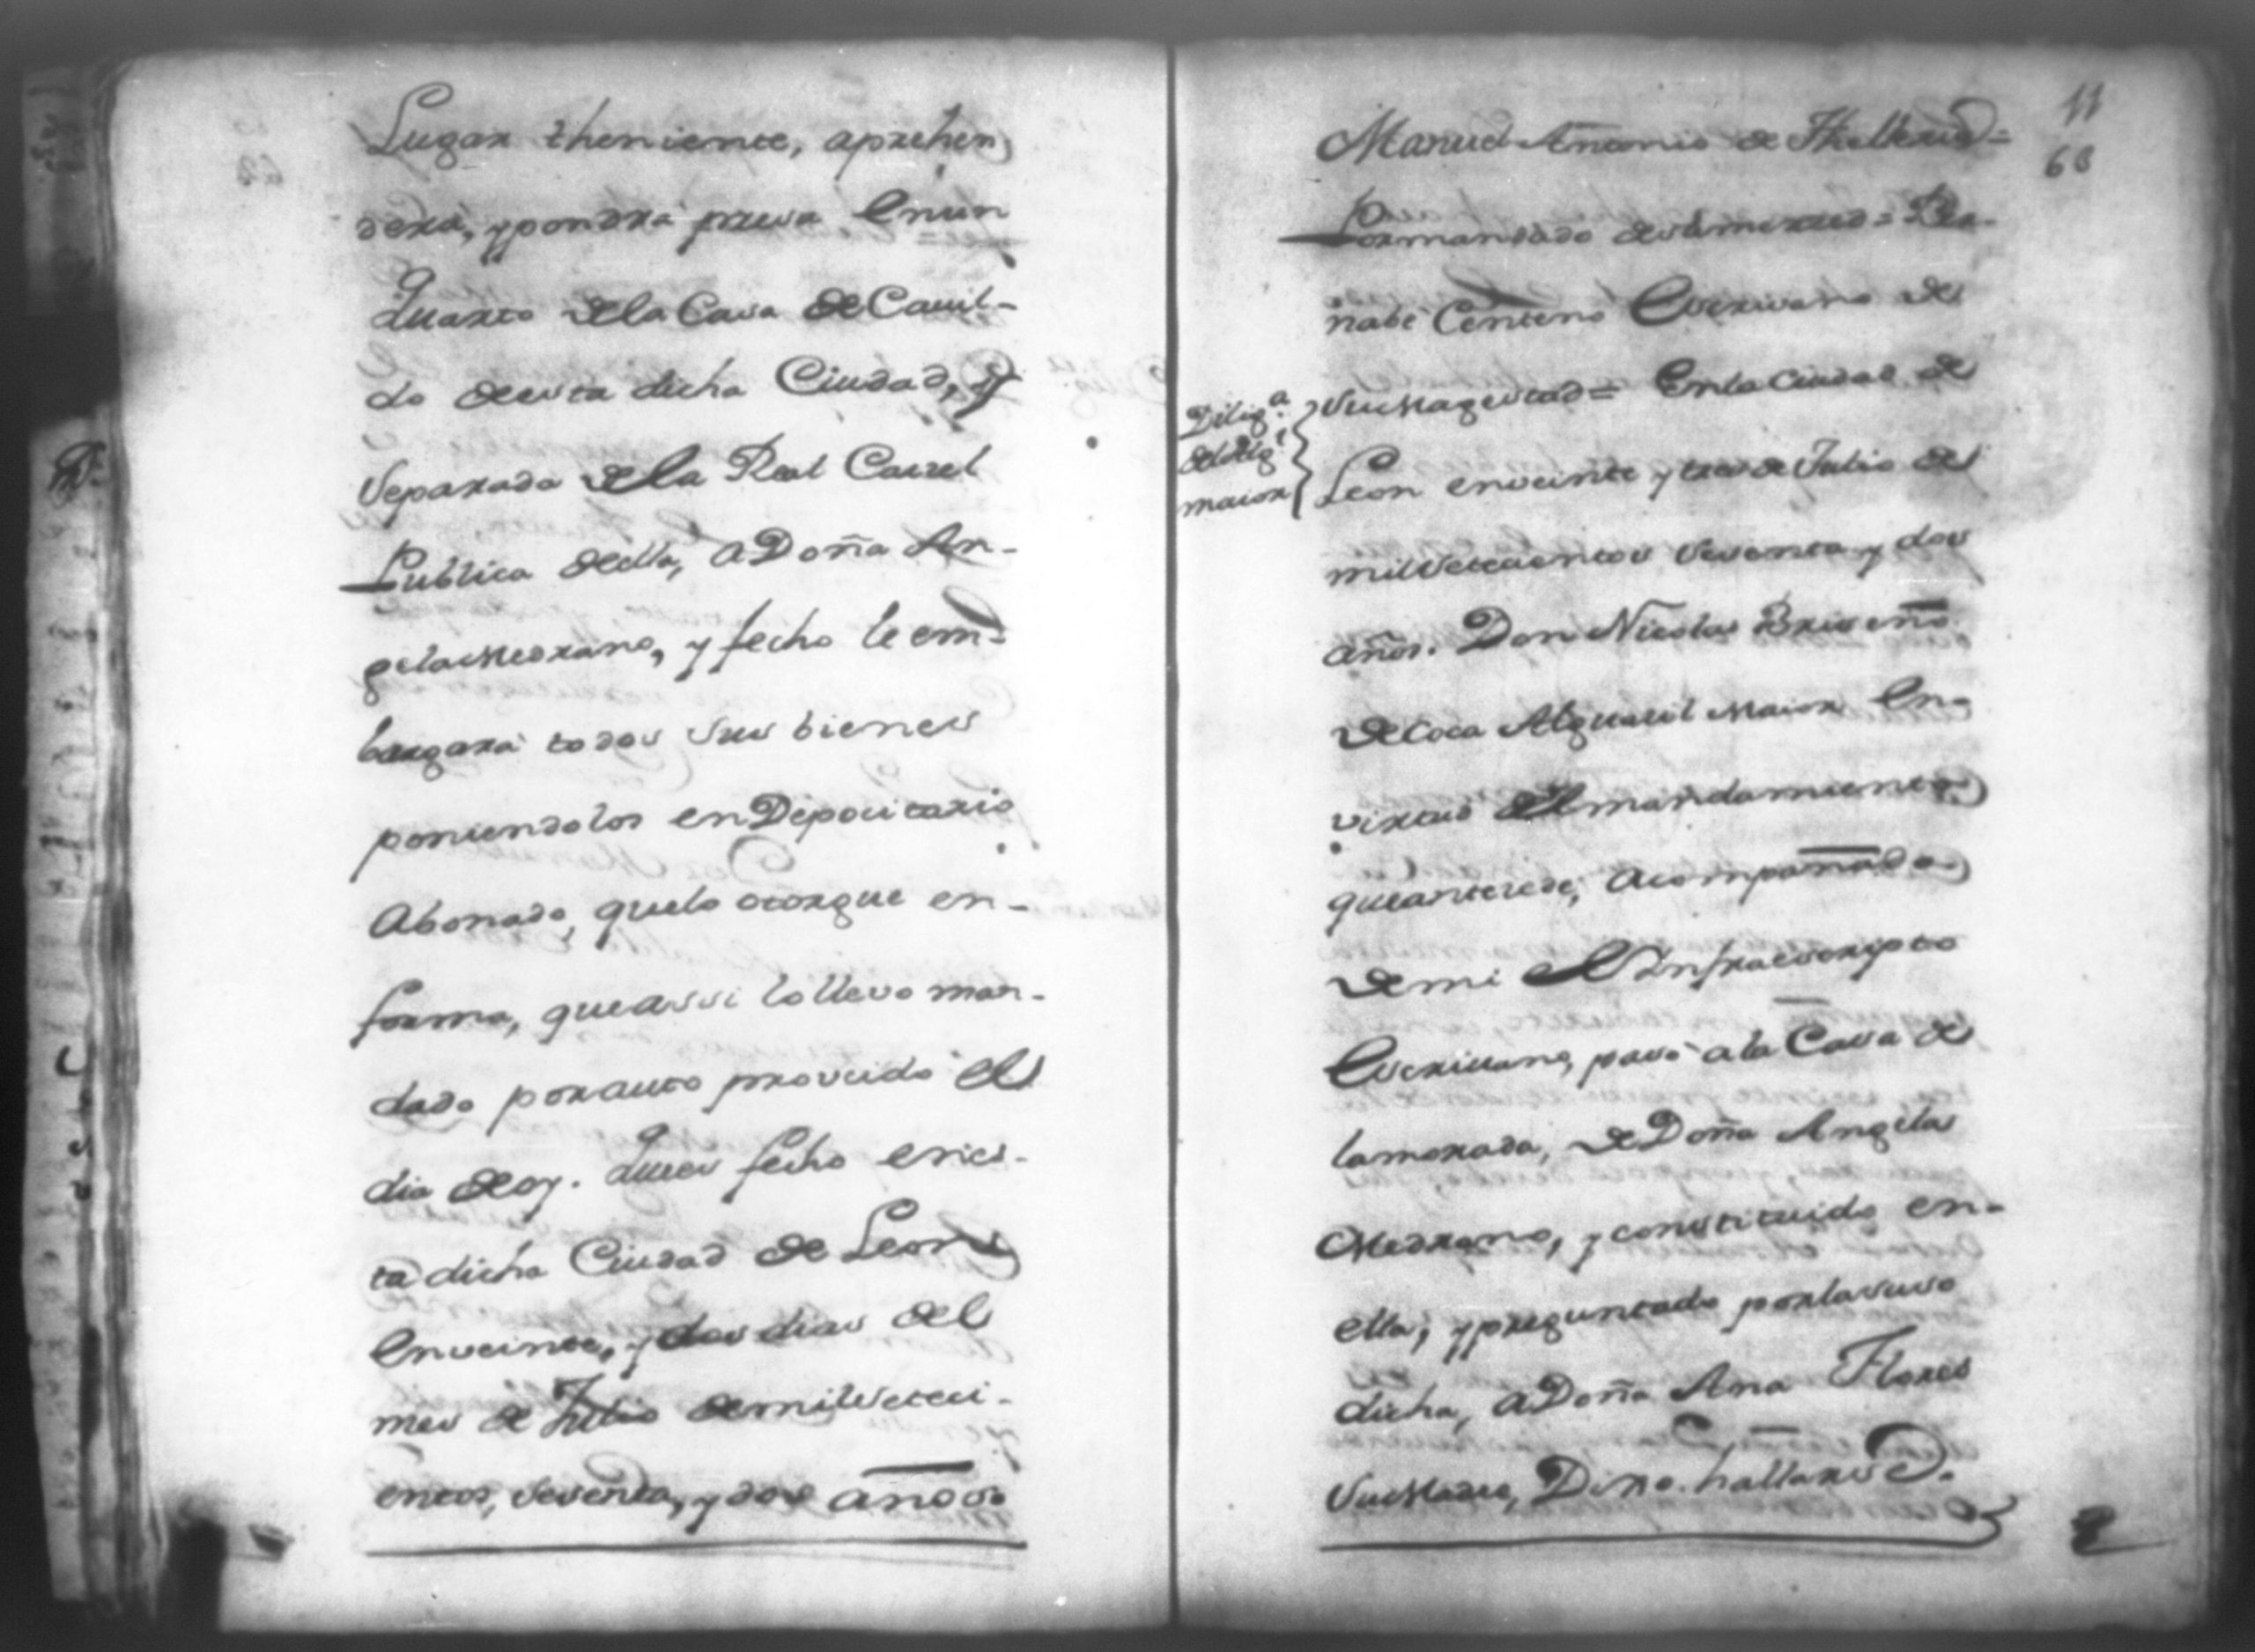 Lugar theniente, aprehen
derá, y pondrá presa en un
Quarto de la Casa de Cavil-
do de esta dicha Ciudad, y
Separada de la Real Carzel
Publica de ella, a Doña An-
gela Medrano, y fecho le em-
bargará todos sus bienes
poniendolos en Depocitario
Abonado, que lo otorgue en-
forma, que assi lo llevo man-
dado por auto proveido el
dia de oy. Que es fecho en es-
ta dicha Ciudad de Leon
en veinte, y dos dias del
mes de Julio de mil Seteci-
entos, Sesenta, y dos años
11
68
Manuel Antonio de
Por mandado de su merced = Ber-
nabé Centeno Escrivano de
Diligª
del Alg.l
maior
su Magestad = En la Ciudad de
Leon en veinte y tres de Julio de
mil Setecientos Sesenta y dos
años. Don Nicolas Briseño
de Coca Alguacil Maior En-
virtud del mandamiento
que antecede, acompañado
de mi el Infraescripto
Escrivano, pasó a la Casa de
la morada, de Doña Angela
Medrano, y constituido en-
ella, y preguntado por la suso
dicha, a Doña Ana Flores
su Madre, Dixo. hallarse